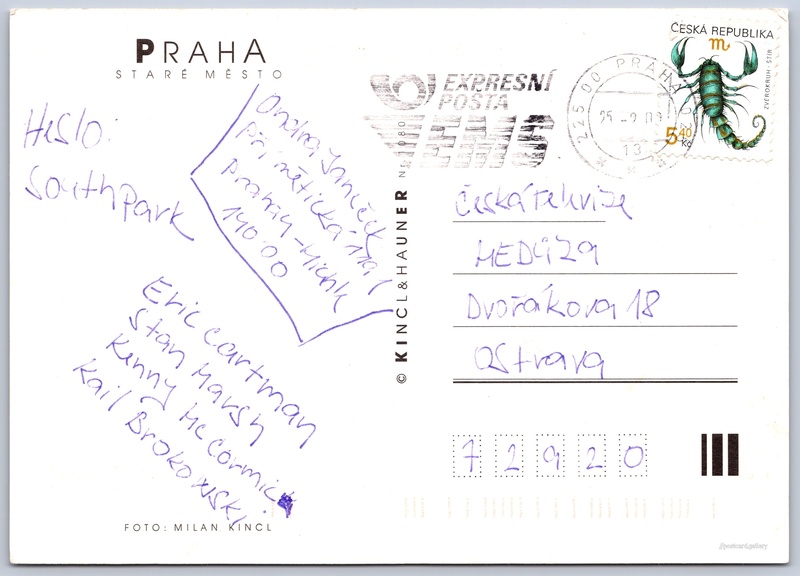 PRAHA
STARÉ MĚSTO
Heslo:
South Park
Ondra Janeček
Přímětická
Prahay - Michle
140 00
Eric Cartman
Stan Marsh
Kenny McCormick
Kail Brokowski
FOTO: MILAN KINCL
© KINCL & HAUNER N 1080
EXPRESNÍ
POŠTA
EMS
225 00 PRAHA
25
13
ČESKÁ REPUBLIKA
ZVĚROKRUH - ŠTÍR
5,40
Kč
Česká televize
MEDÚZA
Dvořákova 18
Ostrava
72920
@postcard.gallery